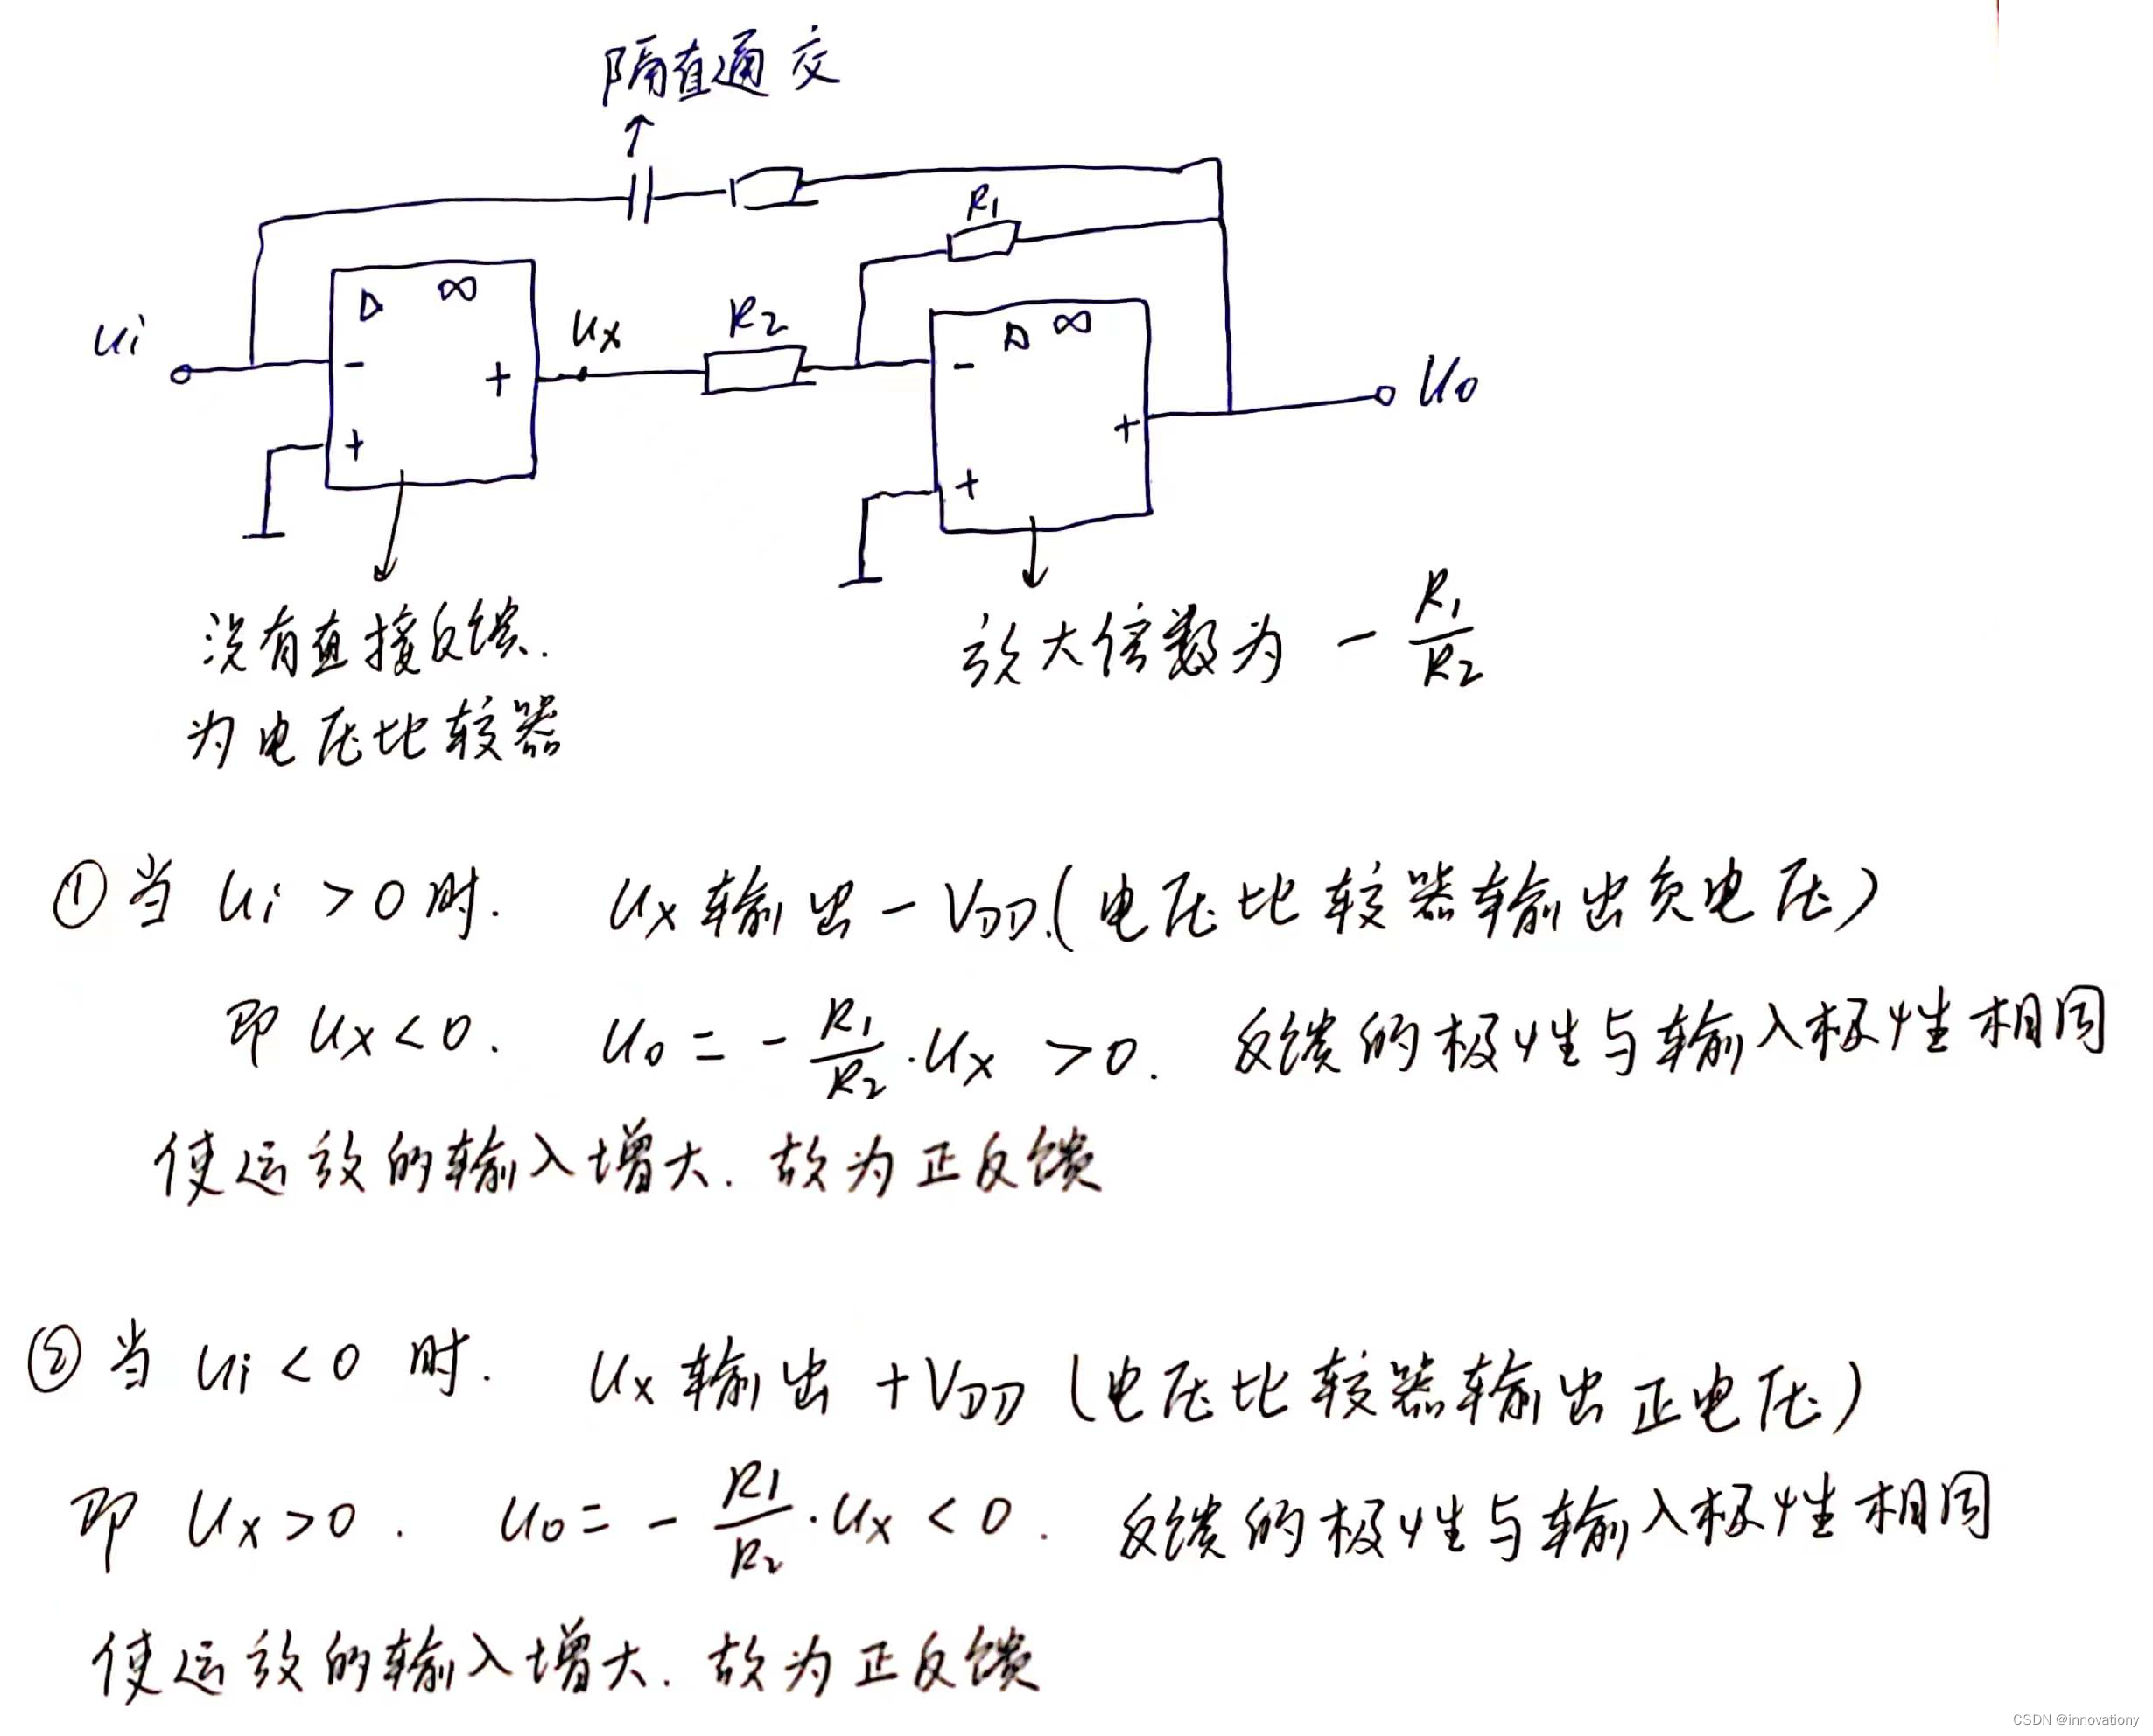 隔直通交
R1
ui
▷ ∞
-
+
+
ux
R2
▷ ∞
-
+
+
uo
没有直接反馈.
为电压比较器
放大倍数为 - R1/R2
①当 ui >0时. ux输出 -VDD.(电压比较器输出负电压)
即 ux<0. uo = - R1/R2 · ux >0. 反馈的极性与输入极性相同
使运放的输入增大. 故为正反馈
②当 ui <0 时. ux输出 +VDD (电压比较器输出正电压)
即 ux>0. uo = - R1/R2 · ux <0. 反馈的极性与输入极性相同
使运放的输入增大. 故为正反馈
CSDN @innovationy